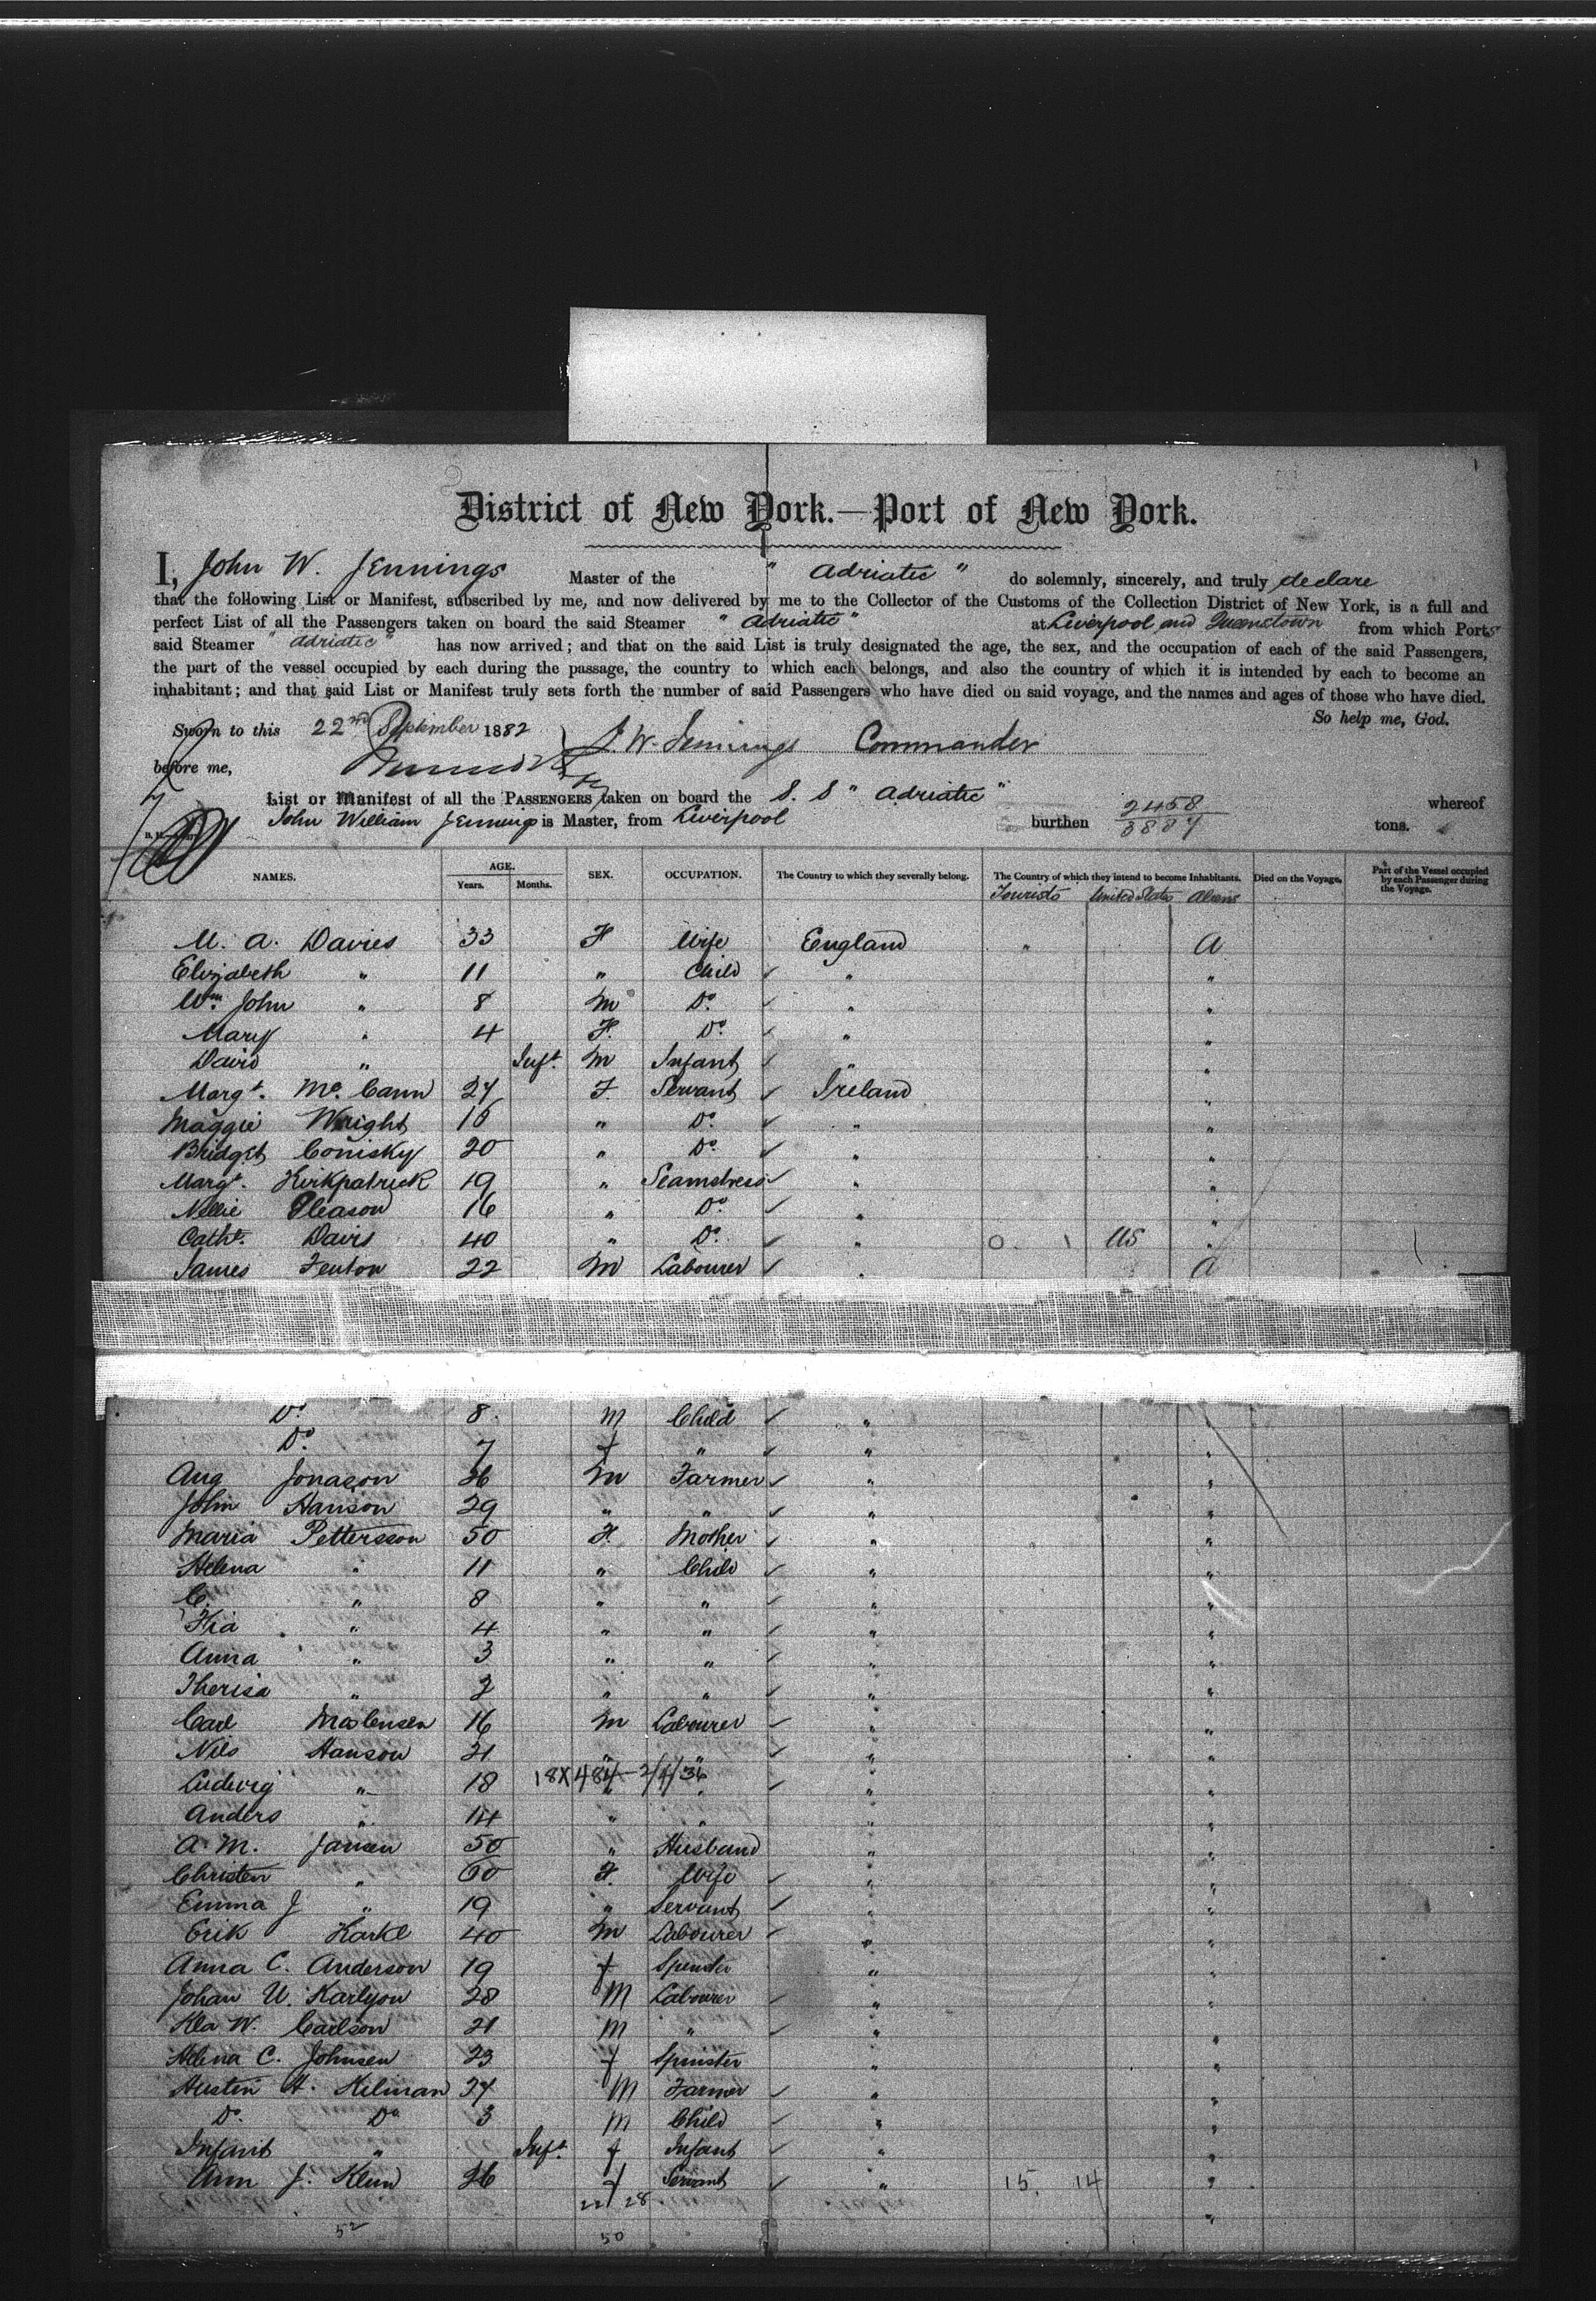 District of New York.—Port of New York.
I, John W. Jennings Master of the "Adriatic" do solemnly, sincerely, and truly declare
that the following List or Manifest, subscribed by me, and now delivered by me to the Collector of the Customs of the Collection District of New York, is a full and
perfect List of all the Passengers taken on board the said Steamer "Adriatic" at Liverpool and Queenstown from which Ports
said Steamer "Adriatic" has now arrived; and that on the said List is truly designated the age, the sex, and the occupation of each of the said Passengers,
the part of the vessel occupied by each during the passage, the country to which each belongs, and also the country of which it is intended by each to become an
inhabitant; and that said List or Manifest truly sets forth the number of said Passengers who have died on said voyage, and the names and ages of those who have died.
So help me, God.
Sworn to this 22nd September 1882 J. W. Jennings Commander
before me,
List or Manifest of all the PASSENGERS taken on board the S. S "Adriatic" whereof
John William Jennings is Master, from Liverpool burthen 2458/3887 tons.
NAMES. AGE. Years. Months. SEX. OCCUPATION. The Country to which they severally belong. The Country of which they intend to become Inhabitants. Died on the Voyage. Part of the Vessel occupied by each Passenger during the Voyage.
Tourists United States Aliens
M. A. Davies 33 F Wife England " A
Elizabeth " 11 " Child " "
Wm. John " 8 M Do. " "
Mary " 4 F. Do. " "
David " Inft. M Infant " "
Margt. McCann 27 F. Servant Ireland "
Maggie Wright 18 " Do. " "
Bridget Conisky 20 " Do. " "
Margt. Kirkpatrick 19 " Seamstress " "
Nellie Gleason 16 " Do. " "
Catht. Davis 40 " Do. " 0 1 US "
James Fenton 22 M Labourer " A
Do. 8 M Child " "
Do. 7 f " " "
Aug Jonason 26 M Farmer " "
John Hanson 29 " " " "
Maria Pettersson 50 F. Mother " "
Helena " 11 " Child " "
C. " 8 " " " "
Fia " 4 " " " "
Anna " 3 " " " "
Therisa " 2 " " " "
Carl 16 M Labourer " "
Nils Hanson 21 " " " "
18X484-2/4/36
Ludwig " 18 " " " "
Anders " 14 " " " "
A. M. Jansen 50 " Husband " "
Christen " 60 F. Wife " "
Emma J " 19 " Servant " "
Erik Karkl 40 M Labourer " "
Anna C. Anderson 19 f Spinster " "
Johan U. Karlyon 28 M Labourer " "
Kla W. Carlson 21 M " " "
Helena C. Johnsen 23 f Spinster " "
Austin H. Kilman 27 M Farmer " "
Do. Do. 3 M Child " "
Infant " Inft. f Infant " "
Ann J. Klun 26 f Servant " 15. 14 "
22 28
52 50